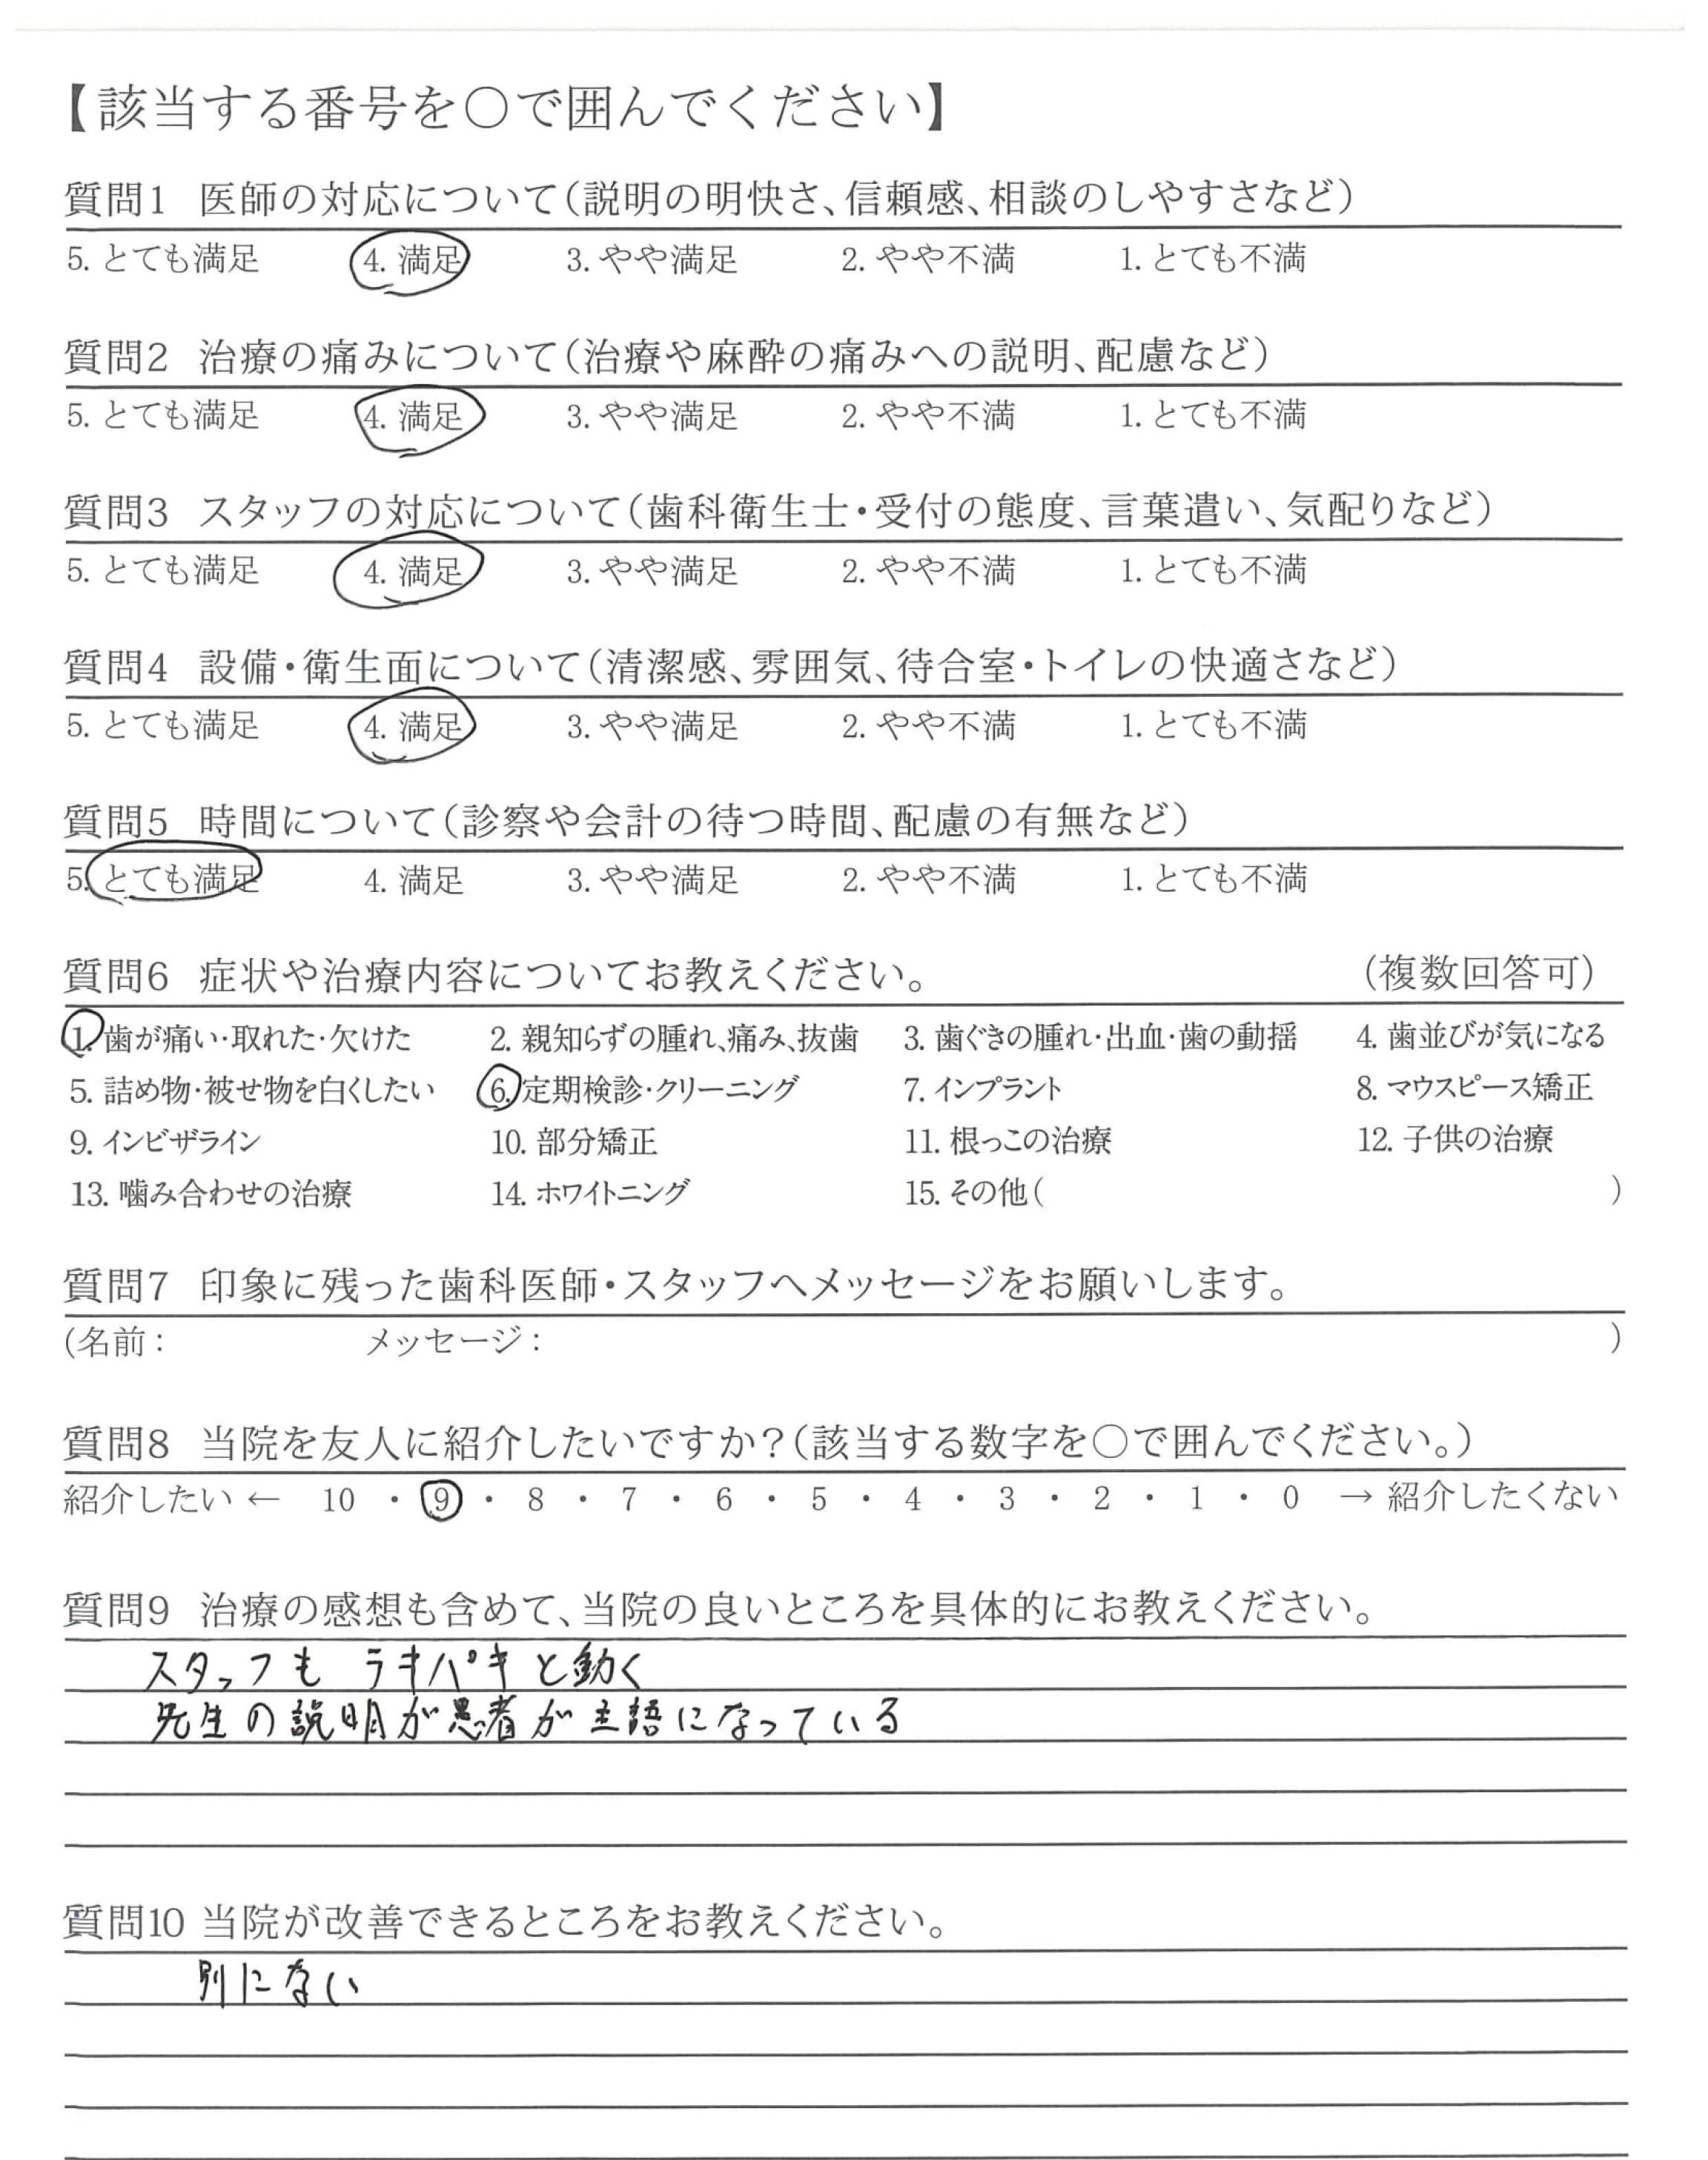 【該当する番号を○で囲んでください】
質問1 医師の対応について(説明の明快さ、信頼感、相談のしやすさなど)
5. とても満足 4. 満足 3. やや満足 2. やや不満 1. とても不満
質問2 治療の痛みについて(治療や麻酔の痛みへの説明、配慮など)
5. とても満足 4. 満足 3. やや満足 2. やや不満 1. とても不満
質問3 スタッフの対応について(歯科衛生士・受付の態度、言葉遣い、気配りなど)
5. とても満足 4. 満足 3. やや満足 2. やや不満 1. とても不満
質問4 設備・衛生面について(清潔感、雰囲気、待合室・トイレの快適さなど)
5. とても満足 4. 満足 3. やや満足 2. やや不満 1. とても不満
質問5 時間について(診察や会計の待つ時間、配慮の有無など)
5. とても満足 4. 満足 3. やや満足 2. やや不満 1. とても不満
質問6 症状や治療内容についてお教えください。 (複数回答可)
1. 歯が痛い・取れた・欠けた 2. 親知らずの腫れ、痛み、抜歯 3. 歯ぐきの腫れ・出血・歯の動揺 4. 歯並びが気になる
5. 詰め物・被せ物を白くしたい 6. 定期検診・クリーニング 7. インプラント 8. マウスピース矯正
9. インビザライン 10. 部分矯正 11. 根っこの治療 12. 子供の治療
13. 噛み合わせの治療 14. ホワイトニング 15. その他( )
質問7 印象に残った歯科医師・スタッフへメッセージをお願いします。
(名前: メッセージ: )
質問8 当院を友人に紹介したいですか?(該当する数字を○で囲んでください。)
紹介したい ← 10 ・ 9 ・ 8 ・ 7 ・ 6 ・ 5 ・ 4 ・ 3 ・ 2 ・ 1 ・ 0 → 紹介したくない
質問9 治療の感想も含めて、当院の良いところを具体的にお教えください。
スタッフも テキパキと動く
先生の説明が患者が主語になっている
質問10 当院が改善できるところをお教えください。
別にない